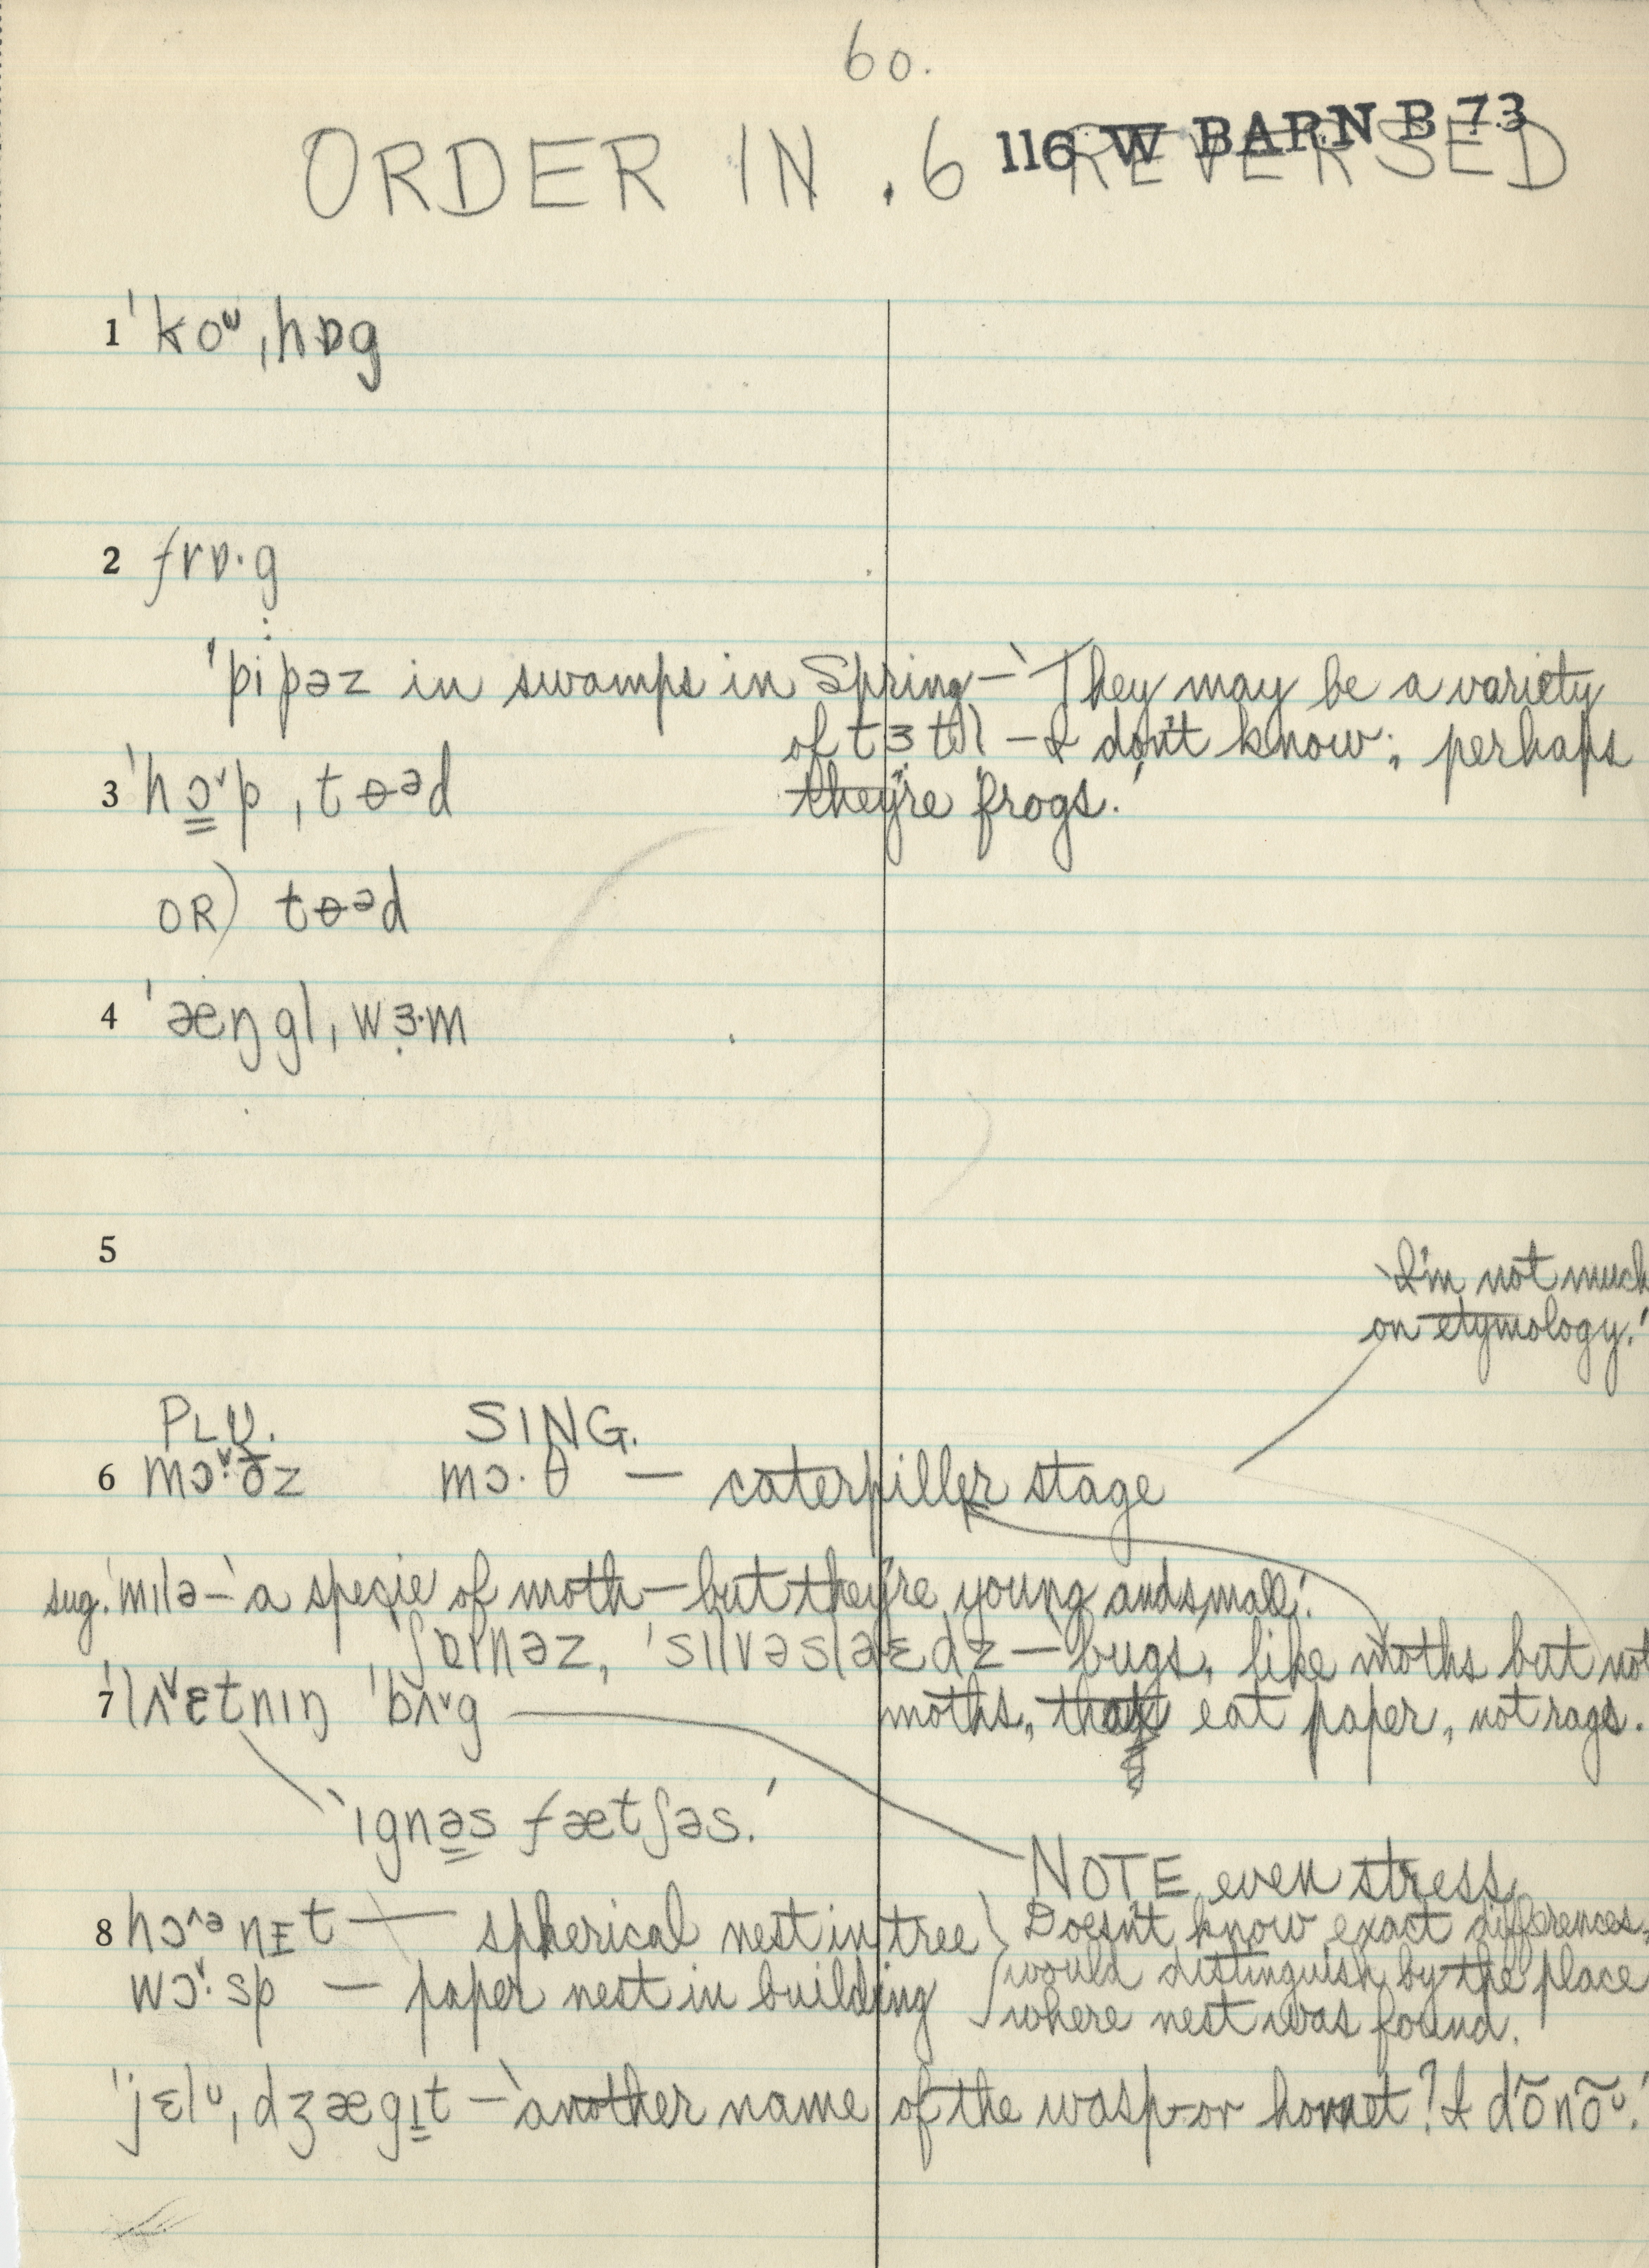 60.
116 W BARN B 73
ORDER IN .6 REVERSED
1 ˈkoᶷ ˌhɒg
2 frɒ·g
ˈpipəz in swamps in Spring – ‘They may be a variety
of tɜtl̩ – I don't know; perhaps
they're frogs.’
3 ˈhɔ̳ˇp ˌtɵᵊd
OR) tɵᵊd
4 ˈæŋgl ˌwɜ̣·m
5
‘I'm not much
on etymology.’
PLU. SING.
6 mɔˇ·ðz mɔ·θ — caterpiller stage
sug. ˈmɪlə – ‘a specie of moth – but they're young and small.’
ˈʃɒɪnəz, ˈsɪlvəslaɛdz – ‘bugs, like moths but not
7 ˈlʌˇɛtnɪŋ ˈbʌˇg moths, that eat paper, not rags.
‘ɪgnə̳s fætʃəs.’
NOTE even stress
8 hɔ^ənɪt — spherical nest in tree } Doesn't know exact differences,
wɔˇ·sp — paper nest in building } would distinguish by the place
where nest was found.
ˈjɛlᶷ ˌdʒægɪ̳t – ‘another name of the wasp or hornet? I dõnõᶷ.’